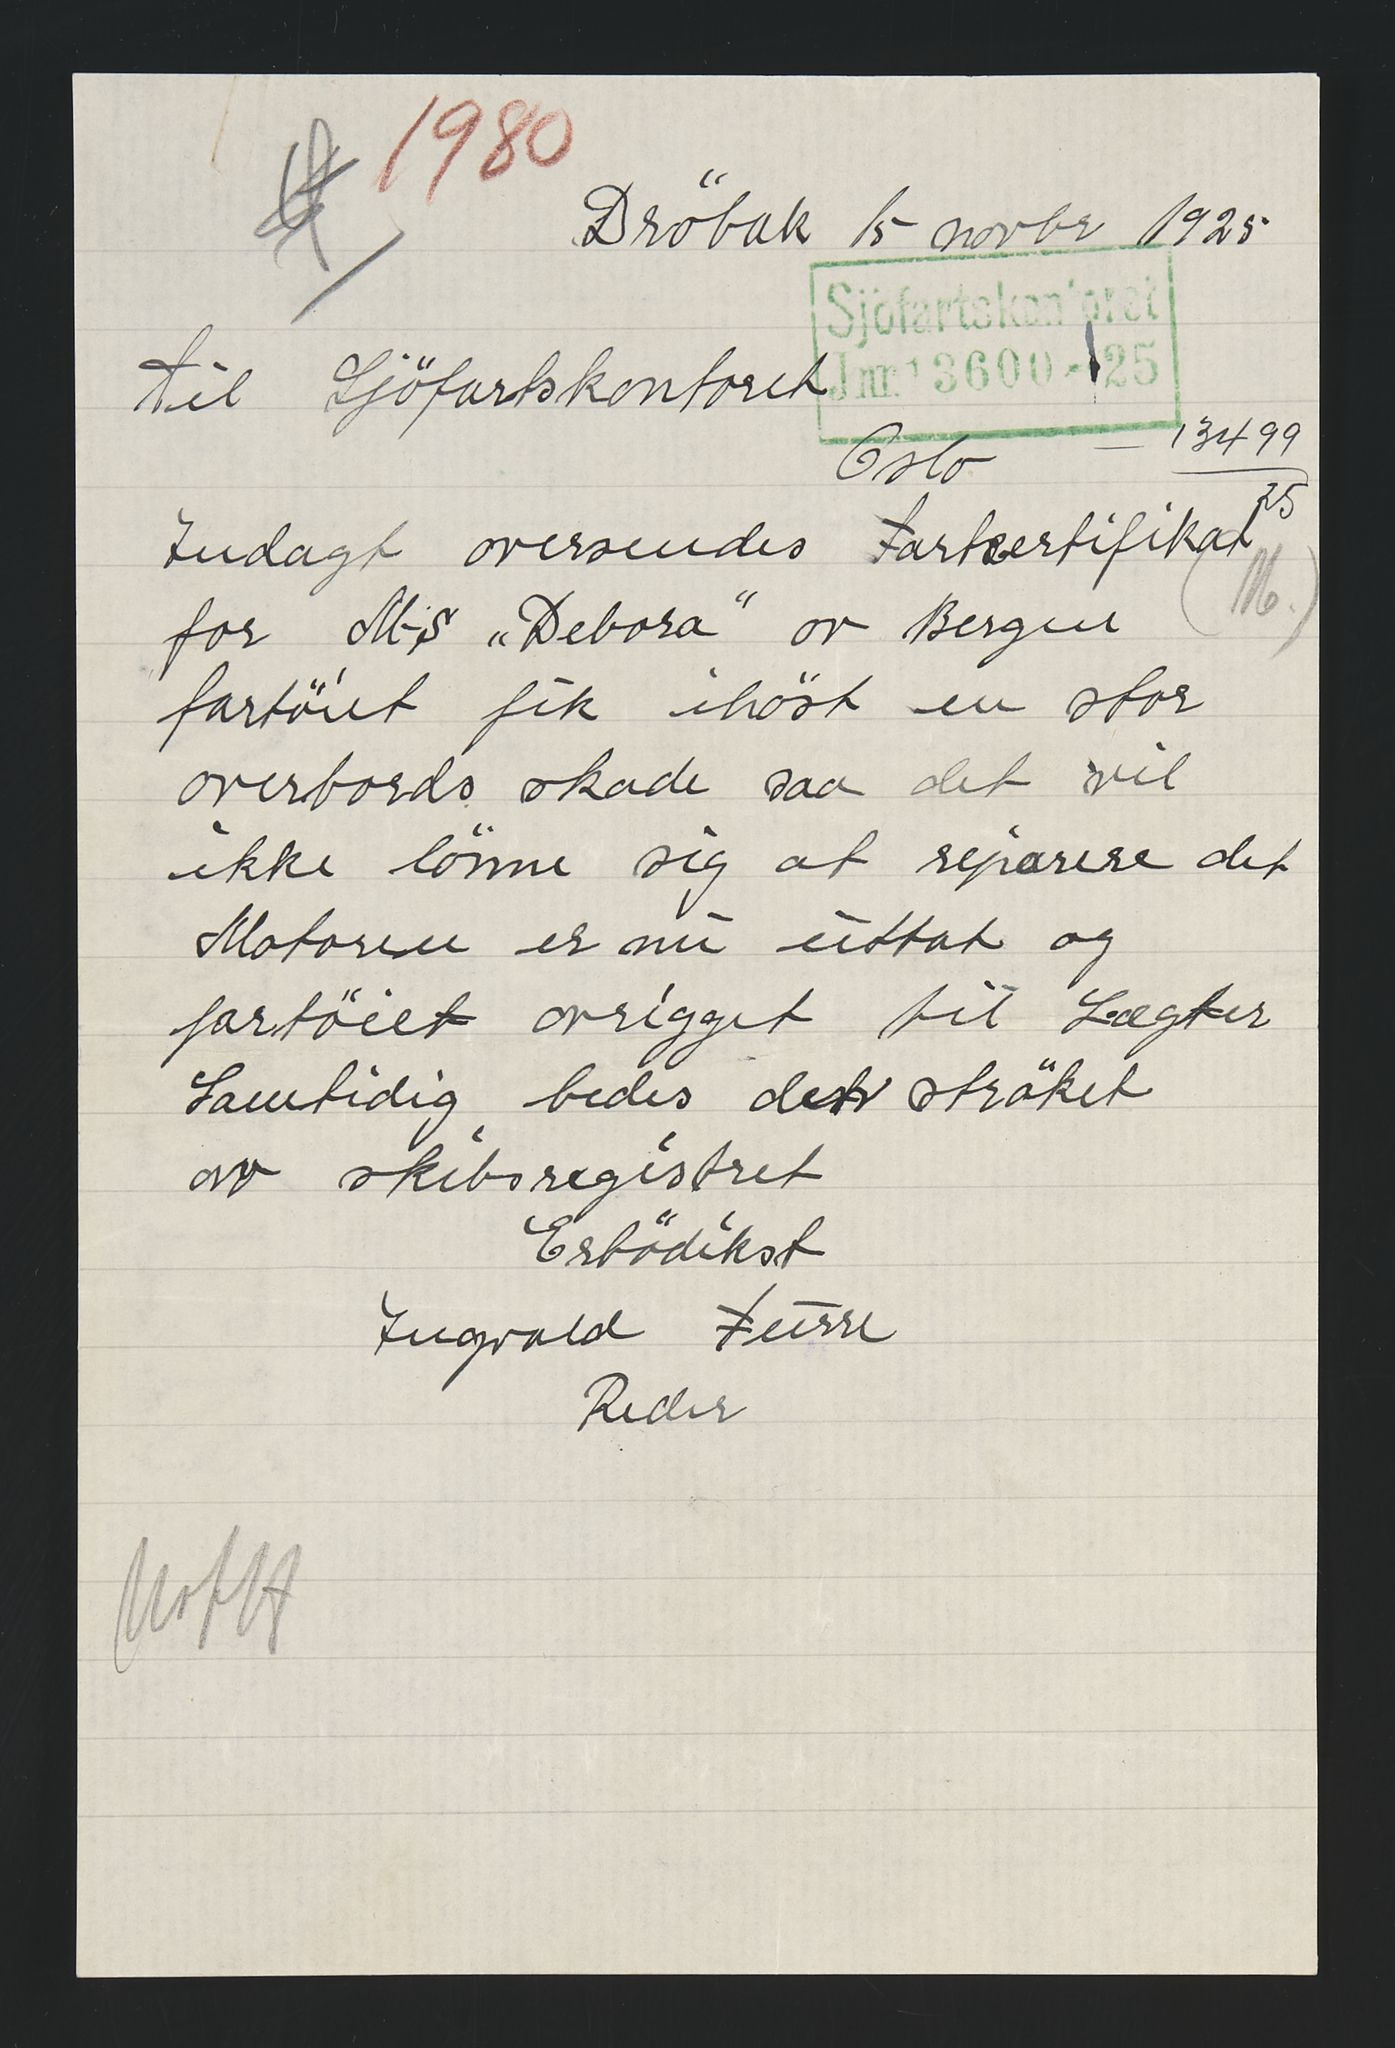 1980
Dröbak 15 novbr 1925
Sjöfartskontoret
Jnr. 13600-25
Til Sjöfartskontoret
Oslo
— 13499
25
Indagt oversendes Fartsertifikat
(M.)
for M-S „Debora“ ov Bergen
fartöiet fik ihöst en stor
overbords skade saa det vil
ikke lönne sig at reparere det
Motoren er nu uttat og
fartöiet ovrigget til Lægter
Samtidig bedes det ströket
ov skibsregistret
Erbödikst
Ingvald Furre
Reder